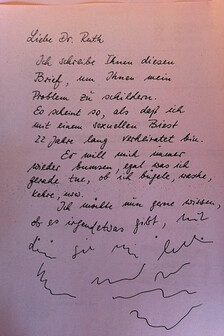 Liebe Dr. Ruth
Ich schreibe Ihnen diesen
Brief, um Ihnen mein
Problem zu schildern.
Es scheint so, als daß ich
mit einem sexuellen Biest
22 Jahre lang verheiratet bin.
Er will mich immer
wieder bumsen egal was ich
gerade tue, ob ich bügele, wasche,
kehre, usw.
Ich möchte nun gerne wissen,
ob es irgendetwas gibt,